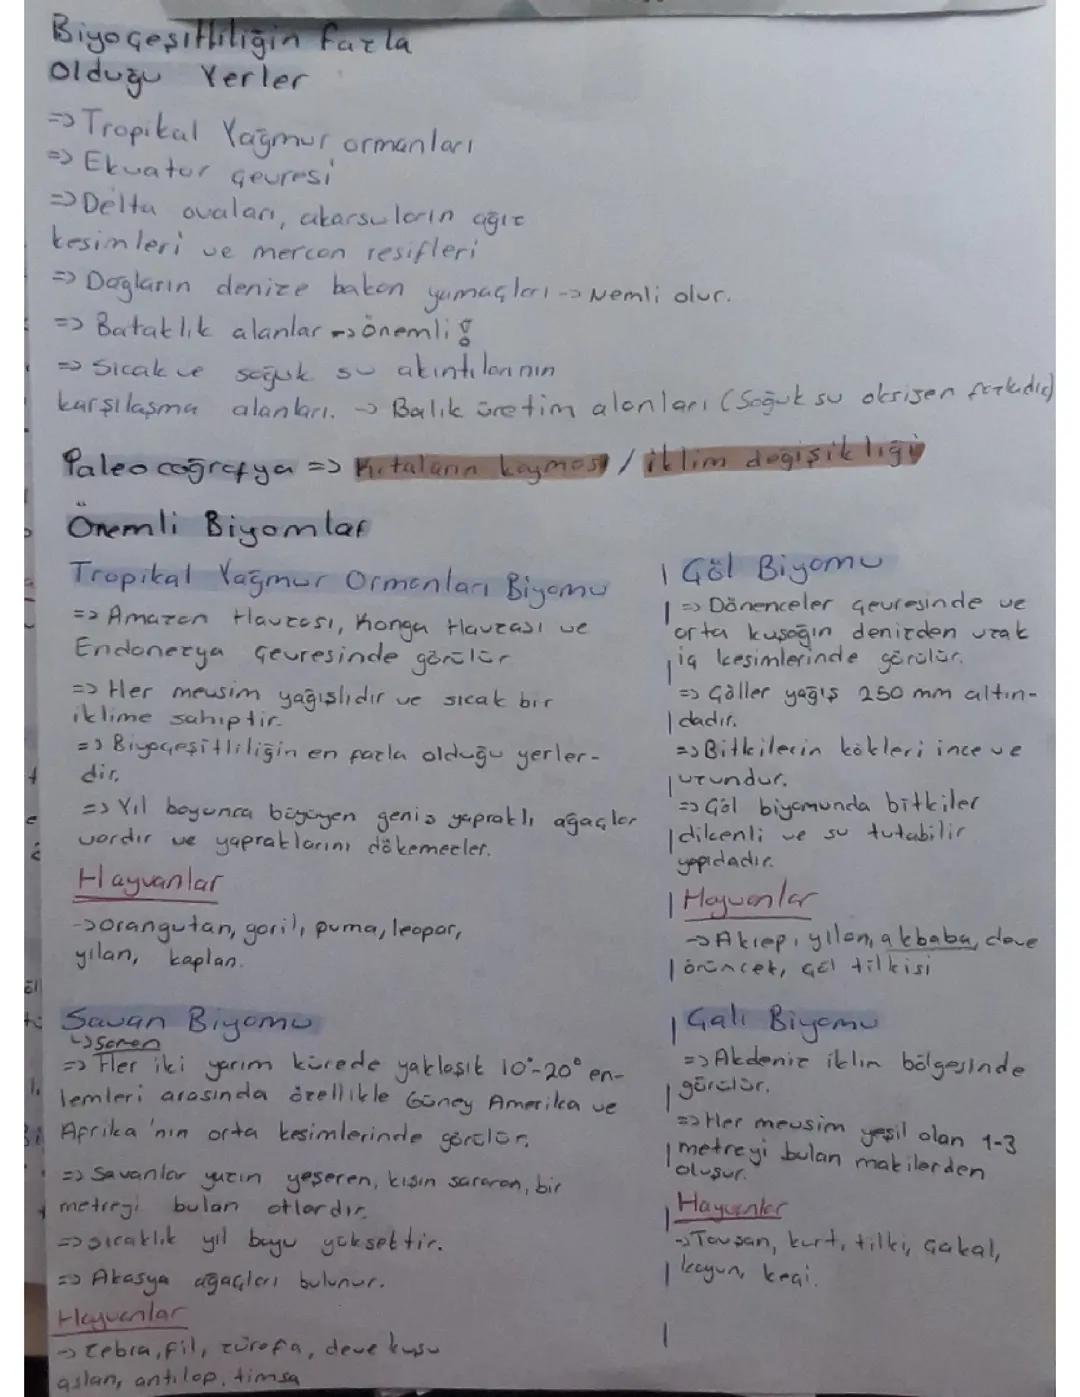 Biyoçeşitliliğin fazla
Olduğu Yerler
=> Tropikal Yağmur ormanları
=> Ekvator çevresi
=> Delta ovaları, akarsuların ağız
kesimleri ve mercan resifleri
=> Dağların denize bakan yamaçları -> Nemli olur.
=> Bataklık alanlar -> önemli!
=> Sıcak ve soğuk su akıntılarının
karşılaşma alanları. -> Balık üretim alanları (Soğuk su oksijen fazladır)
Paleocoğrafya => Kıtaların kayması / iklim değişikliği
Önemli Biyomlar
Tropikal Yağmur Ormanları Biyomu
=> Amazon Havzası, Kongo Havzası ve
Endonezya çevresinde görülür
=> Her mevsim yağışlıdır ve sıcak bir
iklime sahiptir.
=> Biyoçeşitliliğin en fazla olduğu yerler-
dir.
=> Yıl boyunca büyüyen geniş yapraklı ağaçlar
vardır ve yapraklarını dökemezler.
Hayvanlar
-> orangutan, goril, puma, leopar,
yılan, kaplan.
Savan Biyomu
=> Her iki yarım kürede yaklaşık 10°-20° en-
lemleri arasında özellikle Güney Amerika ve
Aprika'nın orta kesimlerinde görülür.
=> Savanlar yazın yeşeren, kışın sararan, bir
metreyi bulan otlardır.
=> sıcaklık yıl boyu yüksektir.
=> Akasya ağaçları bulunur.
Hayvanlar
-> zebra, fil, zürafa, deve kuşu
aslan, antilop, timsa
Göl Biyomu
=> Dönenceler çevresinde ve
orta kuşağın denizden uzak
iç kesimlerinde görülür.
=> Göller yağış 250 mm altın-
dadır.
=> Bitkilerin kökleri ince ve
uzundur.
=> Göl biyomunda bitkiler
dikenli ve su tutabilir
yapıdadır.
Hayvanlar
-> Akrep, yılan, akbaba, deve
örüncek, çöl tilkisi
Çalı Biyomu
=> Akdeniz iklim bölgesinde
görülür.
=> Her mevsim yeşil olan 1-3
metreyi bulan makilerden
oluşur.
Hayvanlar
-> Tavşan, kurt, tilki, çakal,
koyun, keçi.